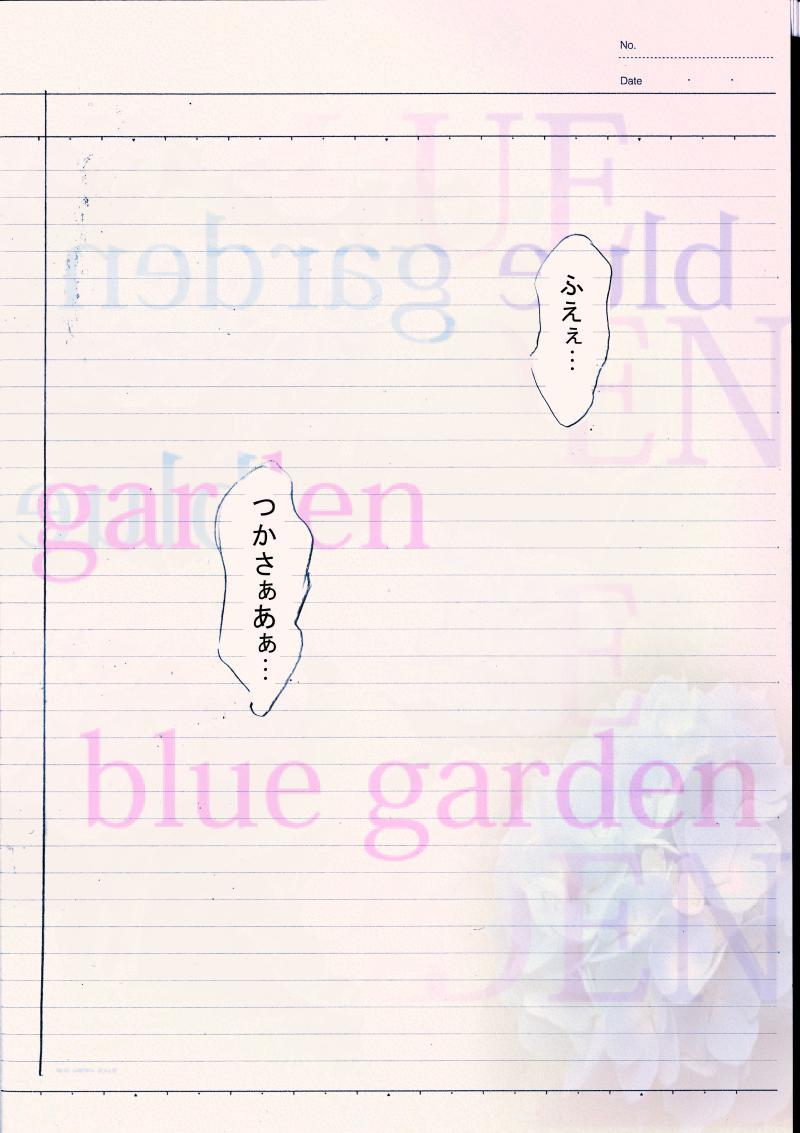 No.
Date
UE
blue garden
ふえぇ…
EN
garden
blue
つかさぁあぁ…
E
blue garden
DEN